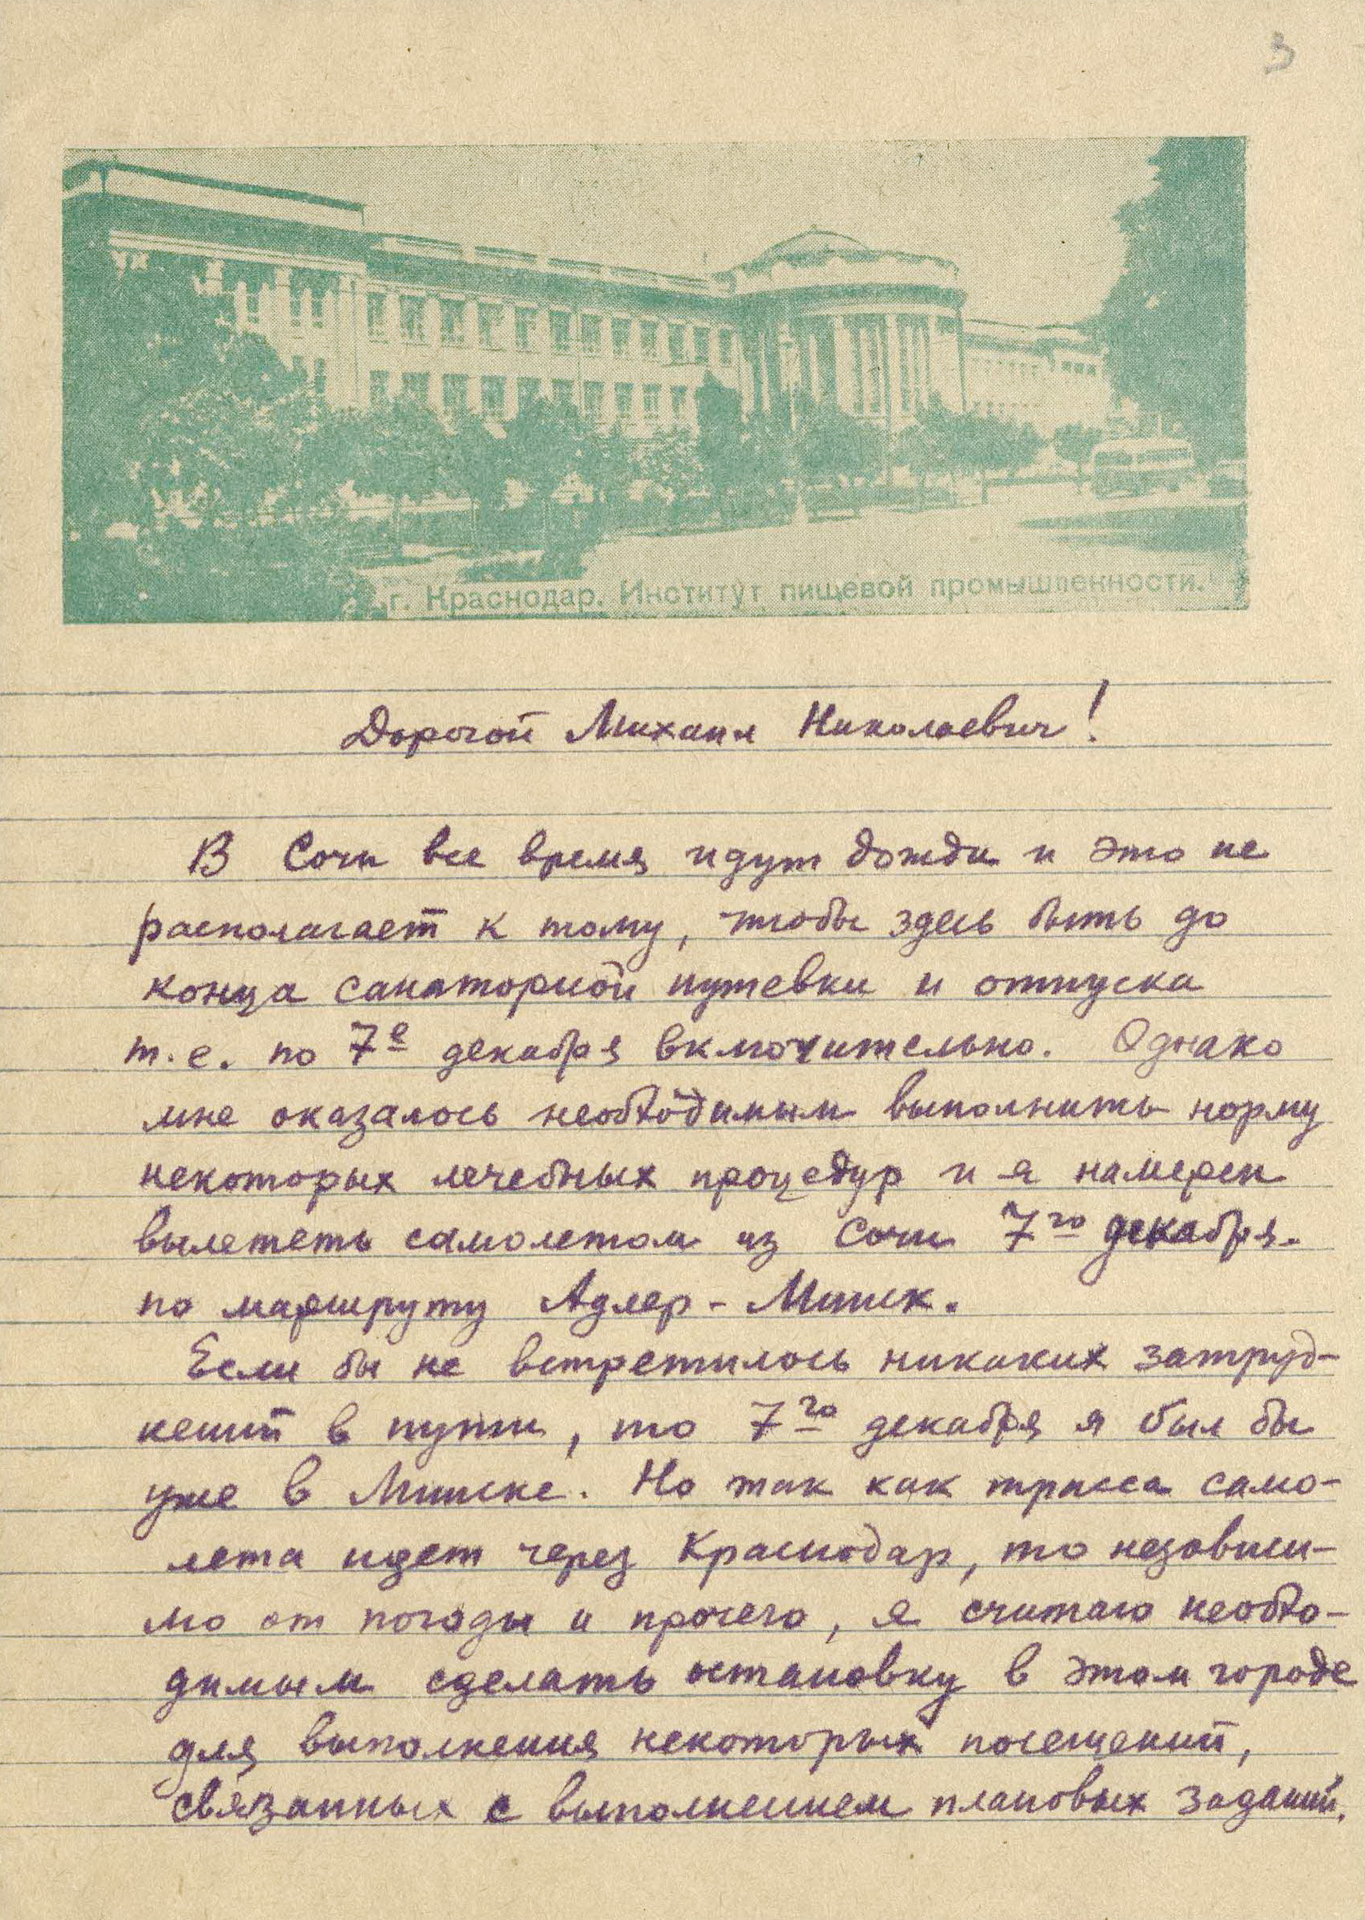 3
г. Краснодар. Институт пищевой промышленности.
Дорогой Михаил Николаевич!
В Сочи все время идут дожди и это не
располагает к тому, чтобы здесь быть до
конца санаторной путевки и отпуска
т.е. по 7е декабря включительно. Однако
мне оказалось необходимым выполнить норму
некоторых лечебных процедур и я намерен
вылететь самолетом из Сочи 7го декабря.
по маршруту Адлер-Минск.
Если бы не встретилось никаких затруд-
нений в пути, то 7го декабря я был бы
уже в Минске. Но так как трасса само-
лета идет через Краснодар, то независи-
мо от погоды и прочего, я считаю необхо-
димым сделать остановку в этом городе
для выполнения некоторых посещений,
связанных с выполнением плановых заданий.